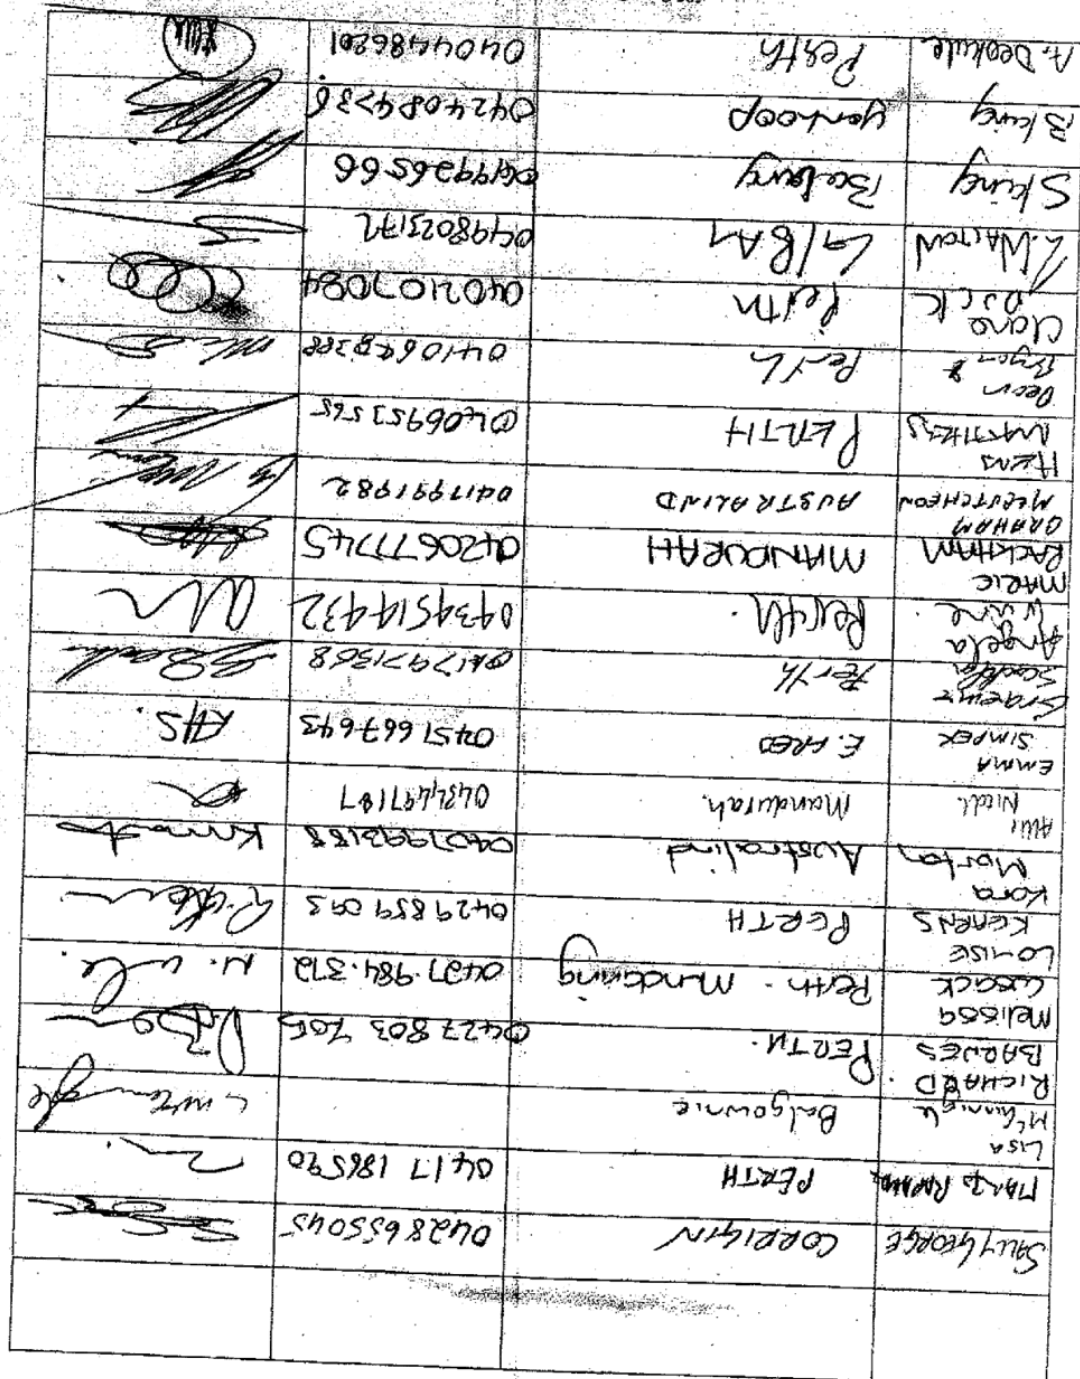 SALLY GEORGE CORRIGIN 0428655045
PERTH 0417 186590
LISA
McGunnigle Balgownie
RICHARD
BARNES PERTH. 0427 803 705
Melissa
Cusack Perth - Mundaring 0427.984.372
LOUISE
KEARNS PERTH 0429 859 093
Kora
Morton Australind 0407993188
Alli
Mandurah. 0434497187
EMMA
SIMPER E. FREO 0451 667 643
Graeme
Perth 0417971368
Angela
Perth. 0434514432
MARIE
RACKHAM MANDURAH 0420677745
GRAHAM
MCCUTCHEON AUSTRALIND 0417991982
MATTHEWS PERTH 0406953565
Deon
Bryan Perth
Clara
DICK Perth 0402107084
L. WALTON 0498023172
S King 049926566
B King Yanchep 0424084736
A. Deokule Perth 0404486201